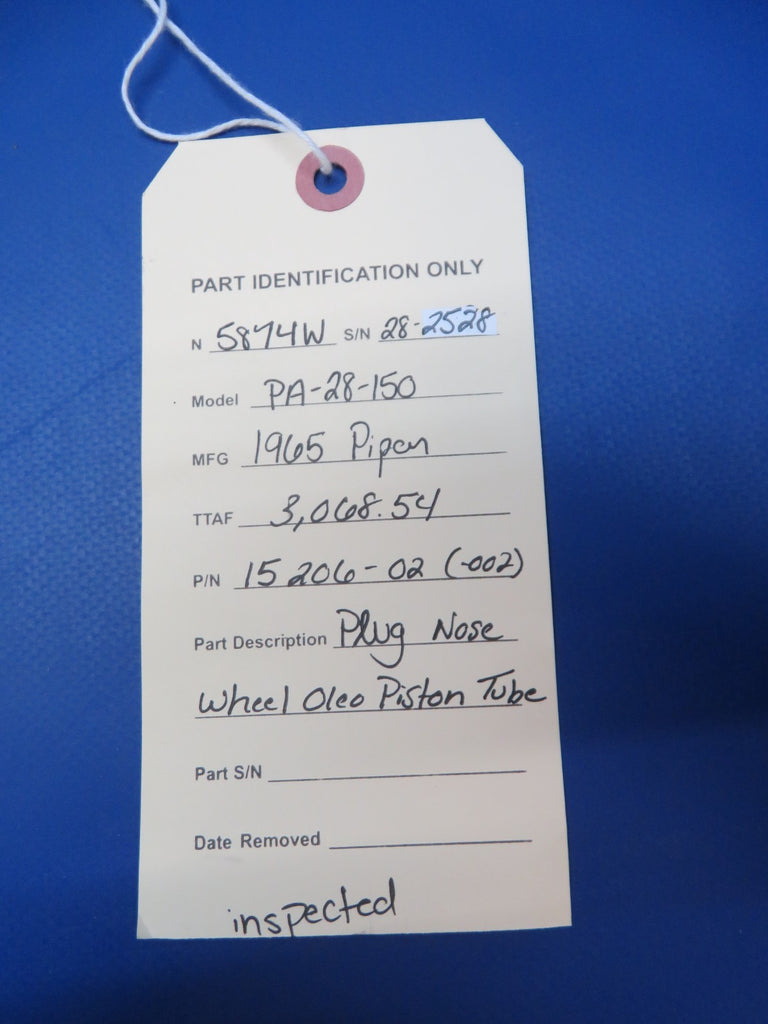 PART IDENTIFICATION ONLY
N 5874W S/N 28-2528
Model PA-28-150
MFG 1965 Piper
TTAF 3,068.54
P/N 15206-02 (-002)
Part Description Plug Nose
Wheel Oleo Piston Tube
Part S/N
Date Removed
inspected